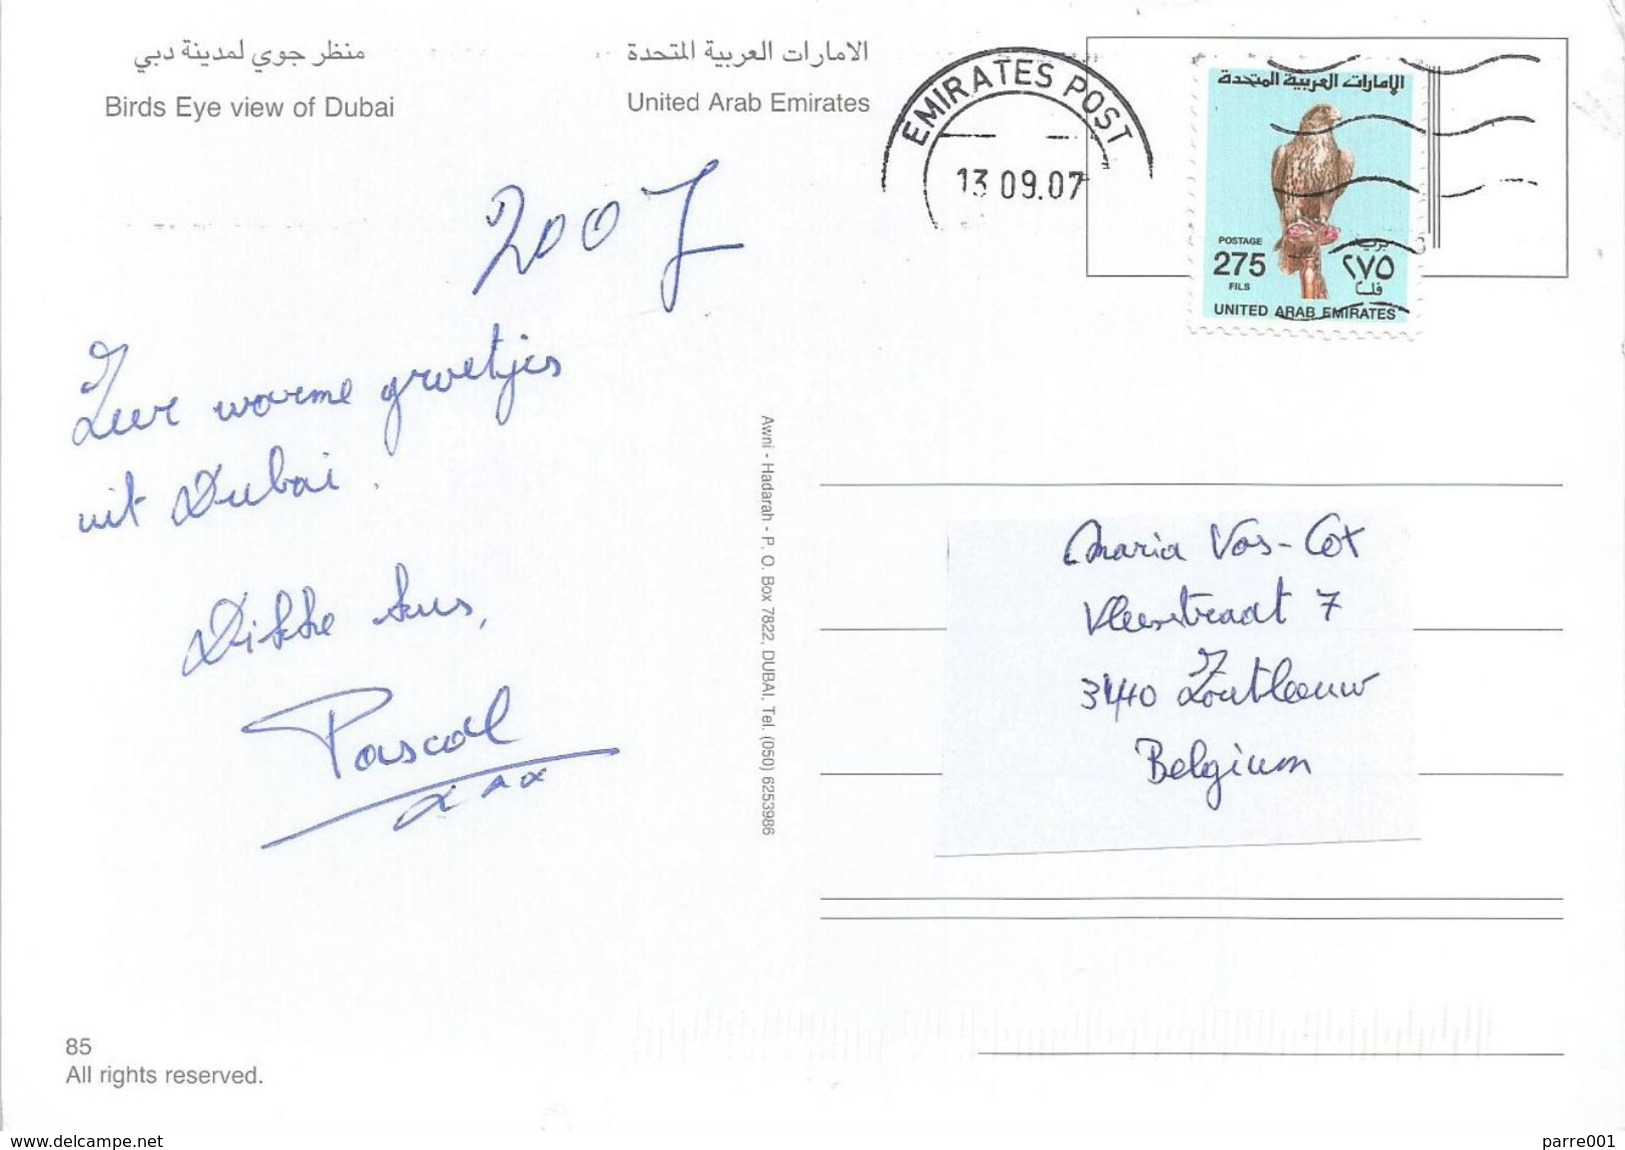 منظر جوي لمدينة دبي
Birds Eye view of Dubai
الامارات العربية المتحدة
United Arab Emirates
EMIRATES POST
13 09.07
الإمارات العربية المتحدة
POSTAGE
275
FILS
بريد
٢٧٥
فلسا
UNITED ARAB EMIRATES
2007
Zeer warme groetjes
uit Dubai.
Dikke kus,
Pascal
xxx
Awni - Hadarah - P. O. Box 7822, DUBAI, Tel. (050) 6253986
Maria Vos-Cox
Vleesstraat 7
3440 Zoutleeuw
Belgium
85
All rights reserved.
www.delcampe.net
parre001